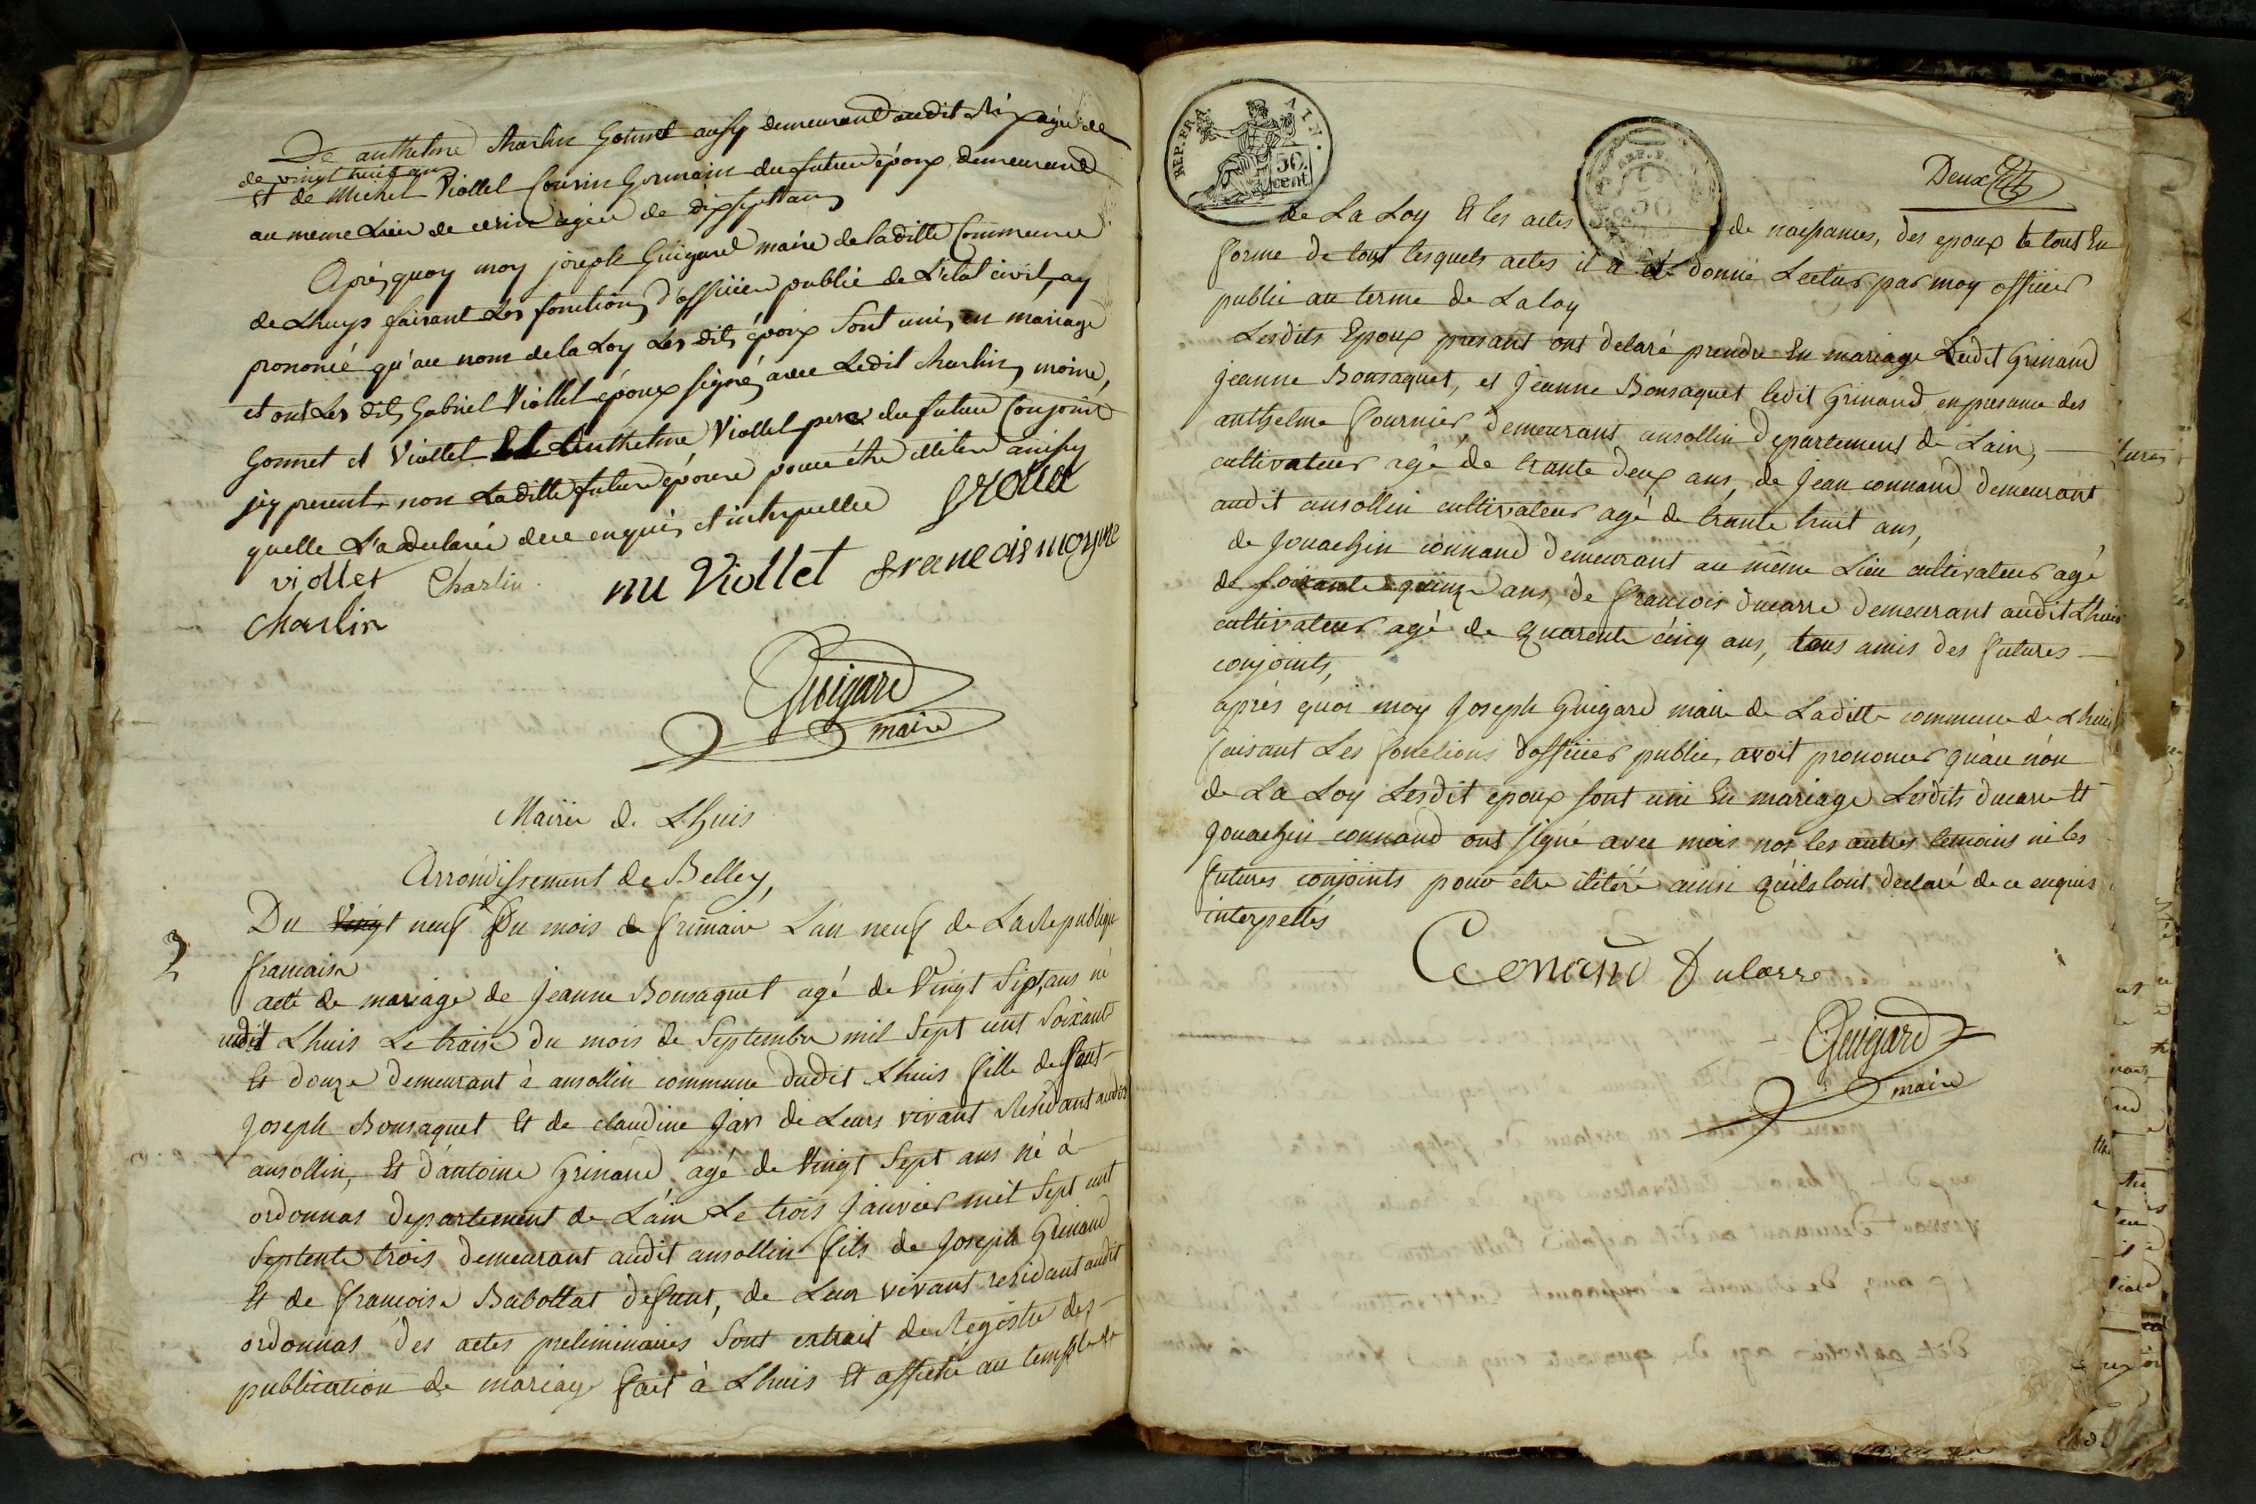 De anthelme Charlin Gonnet aussy demeurant audit Rix agée de
de vingt huit ans
et de Michel Viollet Cousin Germain du futur époux demeurand
au meme Lieu de agée de dix sept ans
Après quoy moy joseph Guigard maire de laditte Commune
de Lhuys faisant Les fonctions d'officier public de L'etat civil, ay
prononcé qu'au nom de la Loy Les dits époux Sont unis en mariage
et ont Les dits Gabriel Viollet époux signé, avec Ledit Charlin, moine,
Gonnet et Viollet Et Anthelme Viollet pere du futur Conjoint
jcy present, non Laditte future épouse pour étre illitere ainsy
quelle L'a declarée de ce enquis et interpellée
viollet Charlin mu Viollet francois moyne
Charlin
Guigard
maire
Mairie de Lhuis
Arrondissement de Belley,
2
Du Vingt neuf Du mois de frimaire L'an neuf de La Republique
francaise
acte de mariage de Jeanne Bonsaquet agé de Vingt Sept ans né
udit Lhuis Le traise du mois de Septembre mil Sept cent Soixante
Et douze demeurant à ansollin commune dudit Lhuis fille defeut
Joseph Bonsaquet Et de claudine Jar de Leurs vivant Residant audit
ansollin, Et d'antoine Grinand agé de Vingt Sept ans né à
ordonnas departement de Lain Le trois Janvier mil Sept cent
Septente trois demeurant audit ansollin fils de Joseph Grinand
Et de francoise Babollat defunt, de Leur vivant residant audit
ordonnas des actes preliminaires Sont extrait de Registre des
publication de mariage fait à Lhuis Et affiché au temple de
REP. FRA. AIN.
50.
cent.
REP. F
50
Deux
de La Loy Et les actes de naissances, des epoux le tout En
forme de tous lesquels actes il a été donné Lecture par moy officier
public au terme de La loy
Lesdits Epoux presant ont delaré prendre En mariage Ledit Grinand
Jeanne Bonsaquet, et Jeanne Bonsaquet ledit Grinand en presance des
anthelme fournier demeurant ansollin departement de Lain,
cultivateur agé de trante deux ans, de Jean connand demeurant
audit ansollin cultivateur agé de trante huit ans,
de Jouachin connand demeurant au même Lieu cultivateur agé
de soixante quinze ans, de francois ducarre demeurant audit Lhuis
cultivateur agé de quarente cinq ans, tous amis des futures
conjoints,
après quoi moy Joseph Guigard maire de Laditte commune de Lhuis
faisant Les fonctions d'officier public, avoit prononcer qu'au nón
de La Loy Lesdit epoux sont uni En mariage Lesdits ducarre Et
Jouachin connand ont signé avec mois non les autres temoins ni les
futures conjoints pour etre ilitéré ainsi qu'ils lont declaré de ce enquis
interpellés
Conand Ducarre
Guigard
maire